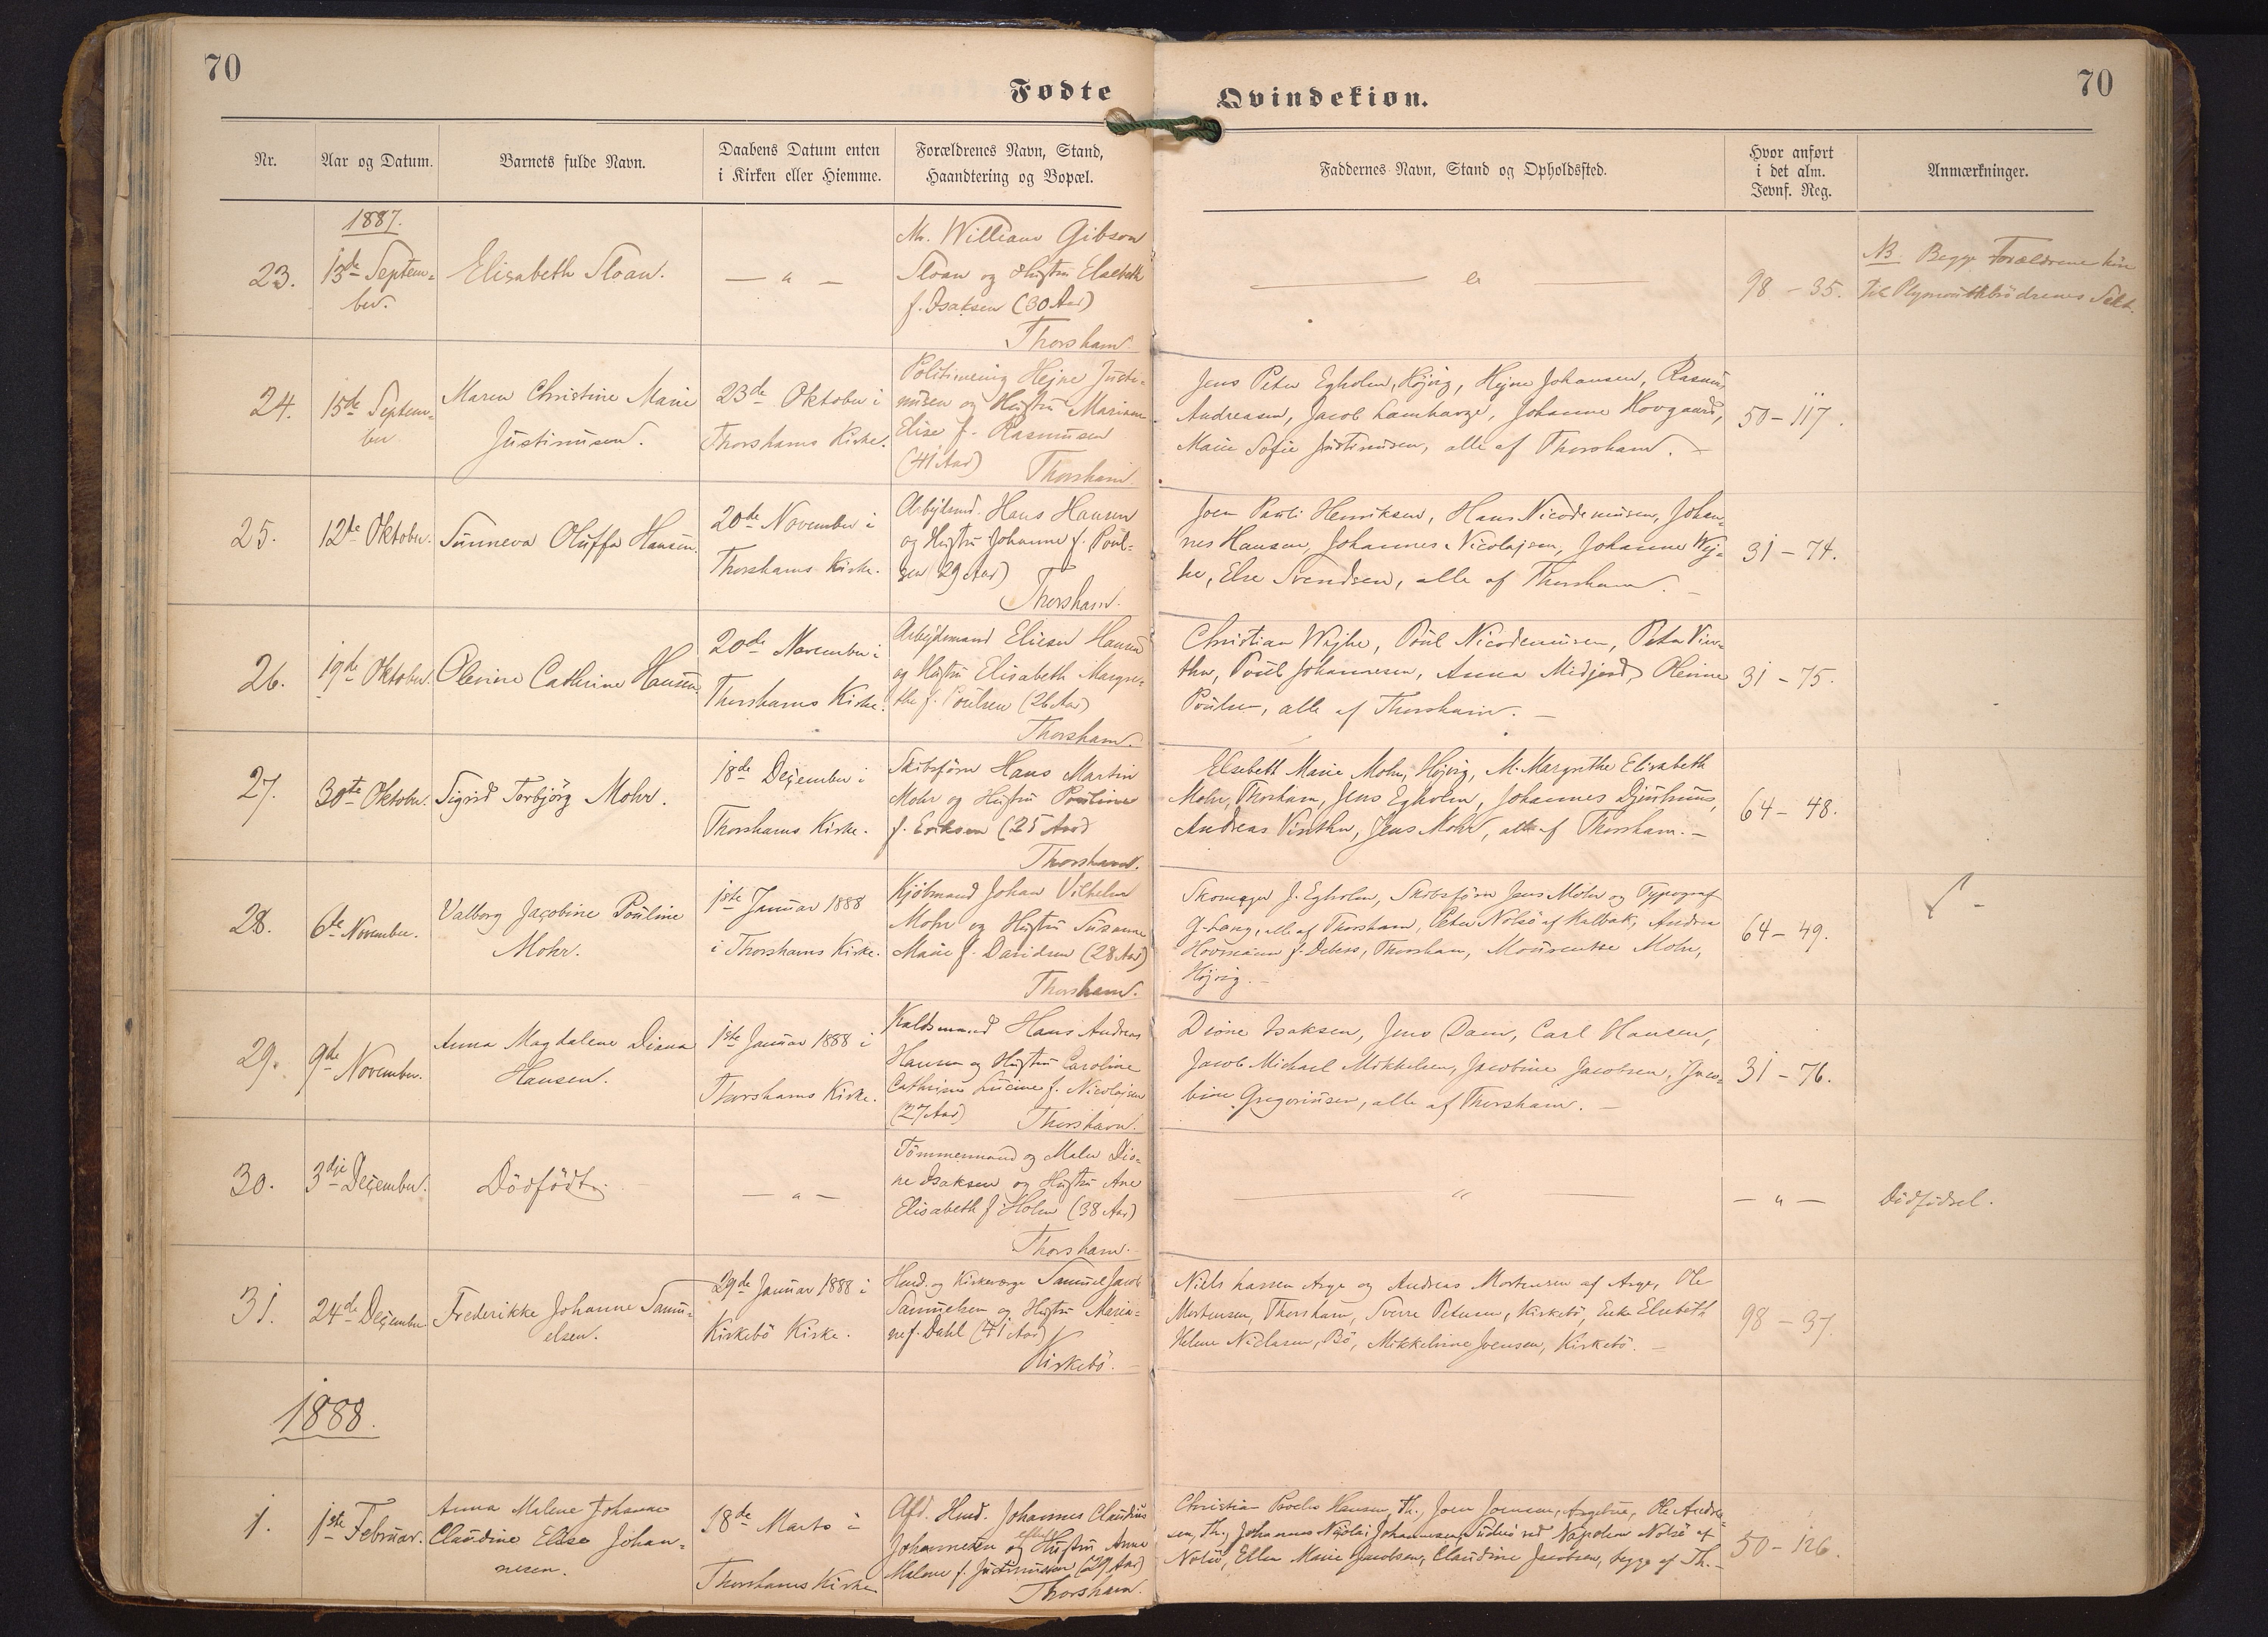 70
Fødte
Qvindekiøn.
70
Nr.
Aar og Datum.
Barnets fulde Navn.
Daabens Datum enten
i Kirken eller Hiemme.
Forældrenes Navn, Stand,
Haandtering og Bopæl.
Faddernes Navn, Stand og Opholdssted.
Hvor anført
i det alm.
Jevnf. Reg.
Anmærkninger.
1887.
23.
13de Septem-
ber.
Elisabeth Sloan.
— " —
Mr. William Gibson
Sloan og Hustru Elsebeth
f. Isaksen (30 Aar)
Thorshavn.
— " —
98 – 35.
NB. Begge Forældrene
til Plymouthbrödrenes Sekt.
24.
15de Septem-
ber
Maren Christine Marie
Justinussen.
23de Oktober i
Thorshavns Kirke.
Hejne Justi-
nusen og Hustru Mariane
Elise f. Rasmussen
(41 Aar) Thorshavn.
Jens Peter Egholm, Højvig, Hejne Johansen, Rasmus
Andreasen, Jacob Lamhauge, Johanne Hovgaard,
Marie Sofie Justinusen, alle af Thorshavn. –
50 – 117.
25.
12te Oktober.
Sunneva Oluffa Hansen.
20de November i
Thorshavns Kirke.
Arbejdsmd. Hans Hansen
og Hustru Johanne f. Poul-
sen (29 Aar)
Thorshavn.
Joen Pauli Henriksen, Hans Nicodemusen, Johan-
nes Hansen, Johannes Nicolajsen, Johanne Wej-
he, Else Svendsen, alle af Thorshavn. –
31 – 74.
26.
19de Oktober.
Olevine Cathrine Hansen
20de November i
Thorshavns Kirke.
Arbejdsmand Eliesar Hansen
og Hustru Elisabeth Margre-
the f. Poulsen (26 Aar)
Thorshavn.
Christian Wejhe, Poul Nicodemusen, Peter Vin-
ther, Poul Johannesen, Anna Midjord, Olevine
Poulsen, alle af Thorshavn. –
31 – 75.
27.
30te Oktober.
Sigrid Torbjörg Mohr.
18de December i
Thorshavns Kirke.
Skibsförer Hans Martin
Mohr og Hustru Pouline
f. Eriksen (25 Aar)
Thorshavn.
Elsebeth Marie Mohr, Højvig, M. Margrethe Elisabeth
Mohr, Thorshavn, Jens Egholm, Johannes Djurhuus,
Andreas Vinther, Jens Mohr, alle af Thorshavn. –
64 – 48.
28.
6te November.
Valborg Jacobine Pouline
Mohr.
1ste Januar 1888
i Thorshavns Kirke.
Kjöbmand Johan Vilhelm
Mohr og Hustru Susanne
Marie f. Davidsen (28 Aar)
Thorshavn.
Skomager J. Egholm, Skibsförer Jens Mohr og Typograf
G. Lang, alle af Thorshavn, Peter Nolsö af Kalbak, Andrea
f. Debess, Thorshavn, Mourentse Mohr,
Højvig. –
64 – 49.
29.
9de November.
Anna Magdalene Diana
Hansen.
1ste Januar 1888 i
Thorshavns Kirke.
Hans Andreas
Hansen og Hustru Caroline
Cathrine Lucine f. Nicolajsen
(27 Aar) Thorshavn.
Dione Isaksen, Jens Dam, Carl Hansen,
Jacob Michael Mikkelsen, Jacobine Jacobsen, Jaco-
bine Gregoriusen, alle af Thorshavn. –
31 – 76.
30.
3die December.
Dödfödt.
— " —
Tömmermand og Maler Dio-
ne Isaksen og Hustru Ane
Elisabeth f. Holm (38 Aar)
Thorshavn.
— " —
— " —
Dödfödsel.
31.
24de December
Frederikke Johanne Samu-
elsen.
29de Januar 1888 i
Kirkebö Kirke.
Husd. og Kirkeværge Samuel Jacob
Samuelsen og Hustru Maria-
ne f. Dahl (41 Aar)
Kirkebö.
Niels Lassen Arge og Andreas Mortensen af Arge, Ole
Mortensen, Thorshavn, Sverre Petersen, Kirkebö, Enke Elsebeth
Helene Niclasen, Bö, Mikkeline Joensen, Kirkebö. –
98 – 37.
1888.
1.
1ste Februar.
Anna Malene Johanne
Claudine Elise Johan-
nesen.
18de Marts i
Thorshavns Kirke
Afd. Husd. Johannes Claudius
Johannesen og efterl. Hustru Anne
Malene f. Justinussen (29 Aar)
Thorshavn.
Christian Hansen, Th., Joen Joensen, Argetue, Ole Andre-
sen, Th., Johannes Nicolai Johannesen, Napoleon Nolsö af
Nolsö, Ellen Marie Jacobsen, Claudine Jacobsen, begge af Th. –
50 – 126.